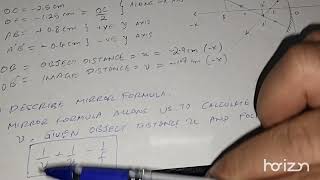 OC = -2.5cm
= -1.25cm = OC/2
AB = +0.8cm } +VE Y AXIS
A'B' = -0.4cm } -VE Y AXIS
OB = OBJECT DISTANCE = x = -2.9cm (-x)
OB' = IMAGE DISTANCE = v = (-x)
DESCRIBE MIRROR FORMULA.
MIRROR FORMULA ALLOWS US TO CALCULATE
v. GIVEN OBJECT DISTANCE u AND
1/v + 1/ = 1/f
horizon